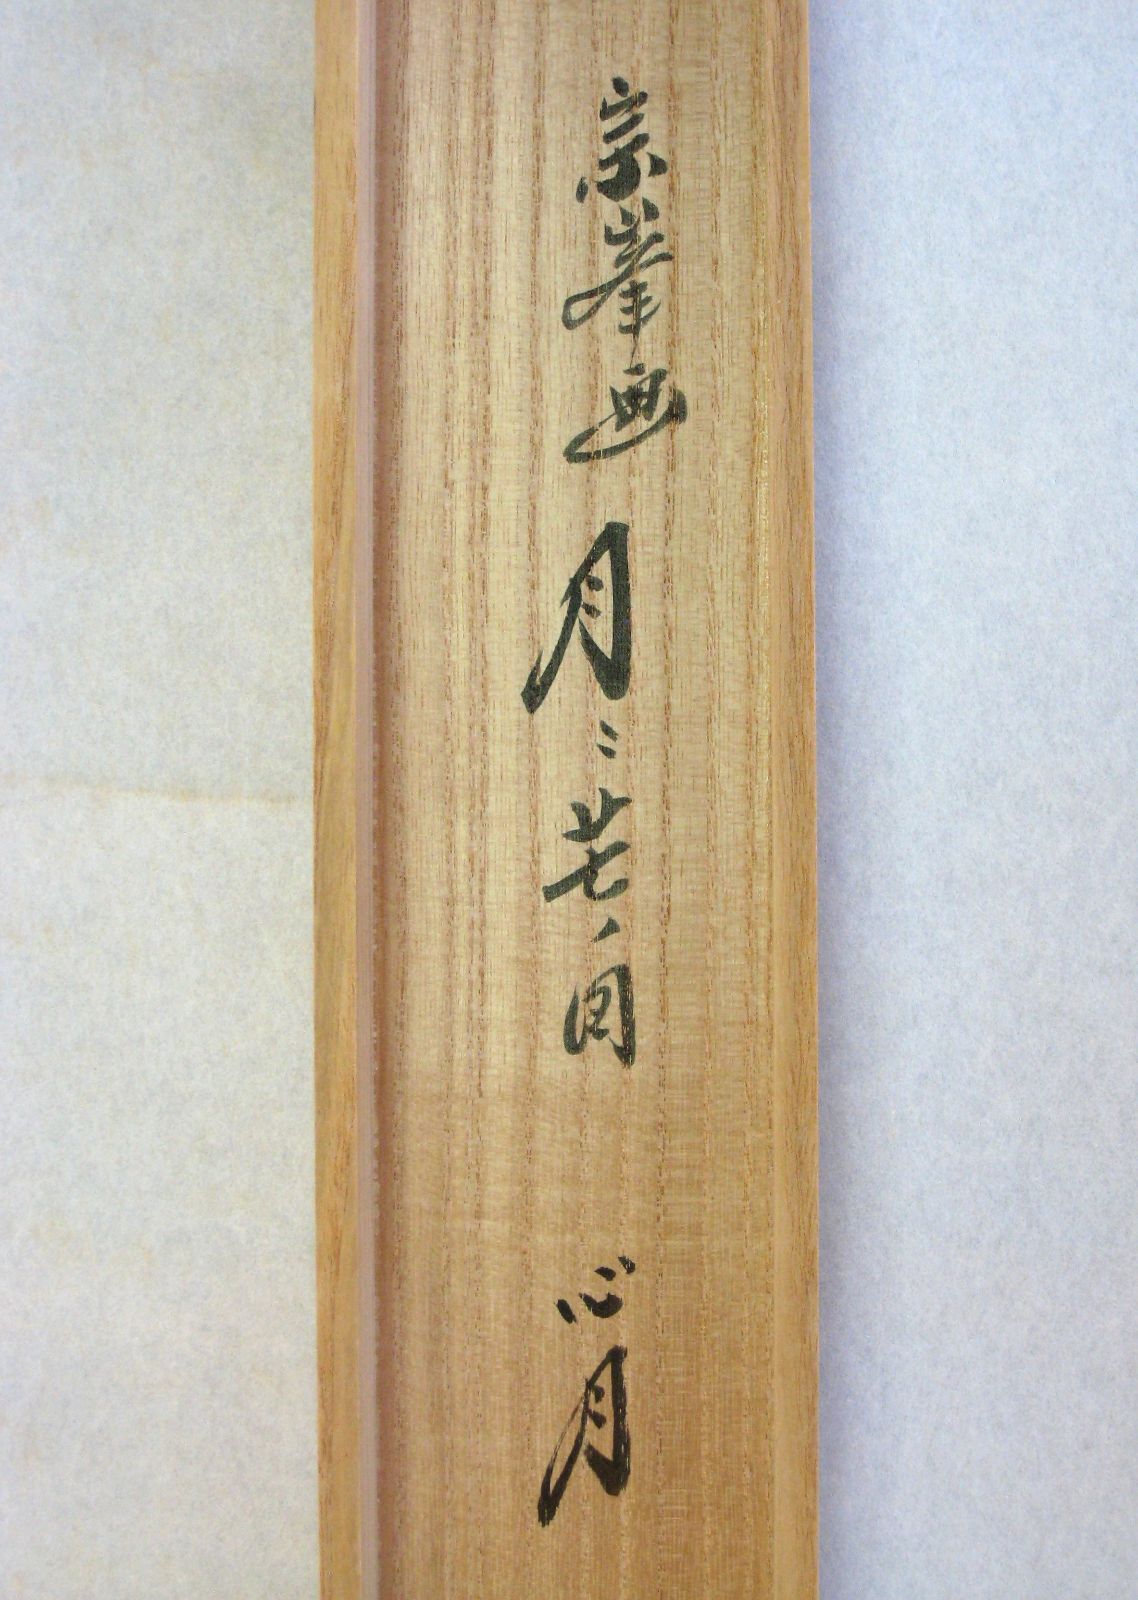 宗峯画 月ニ芒ノ図 心月